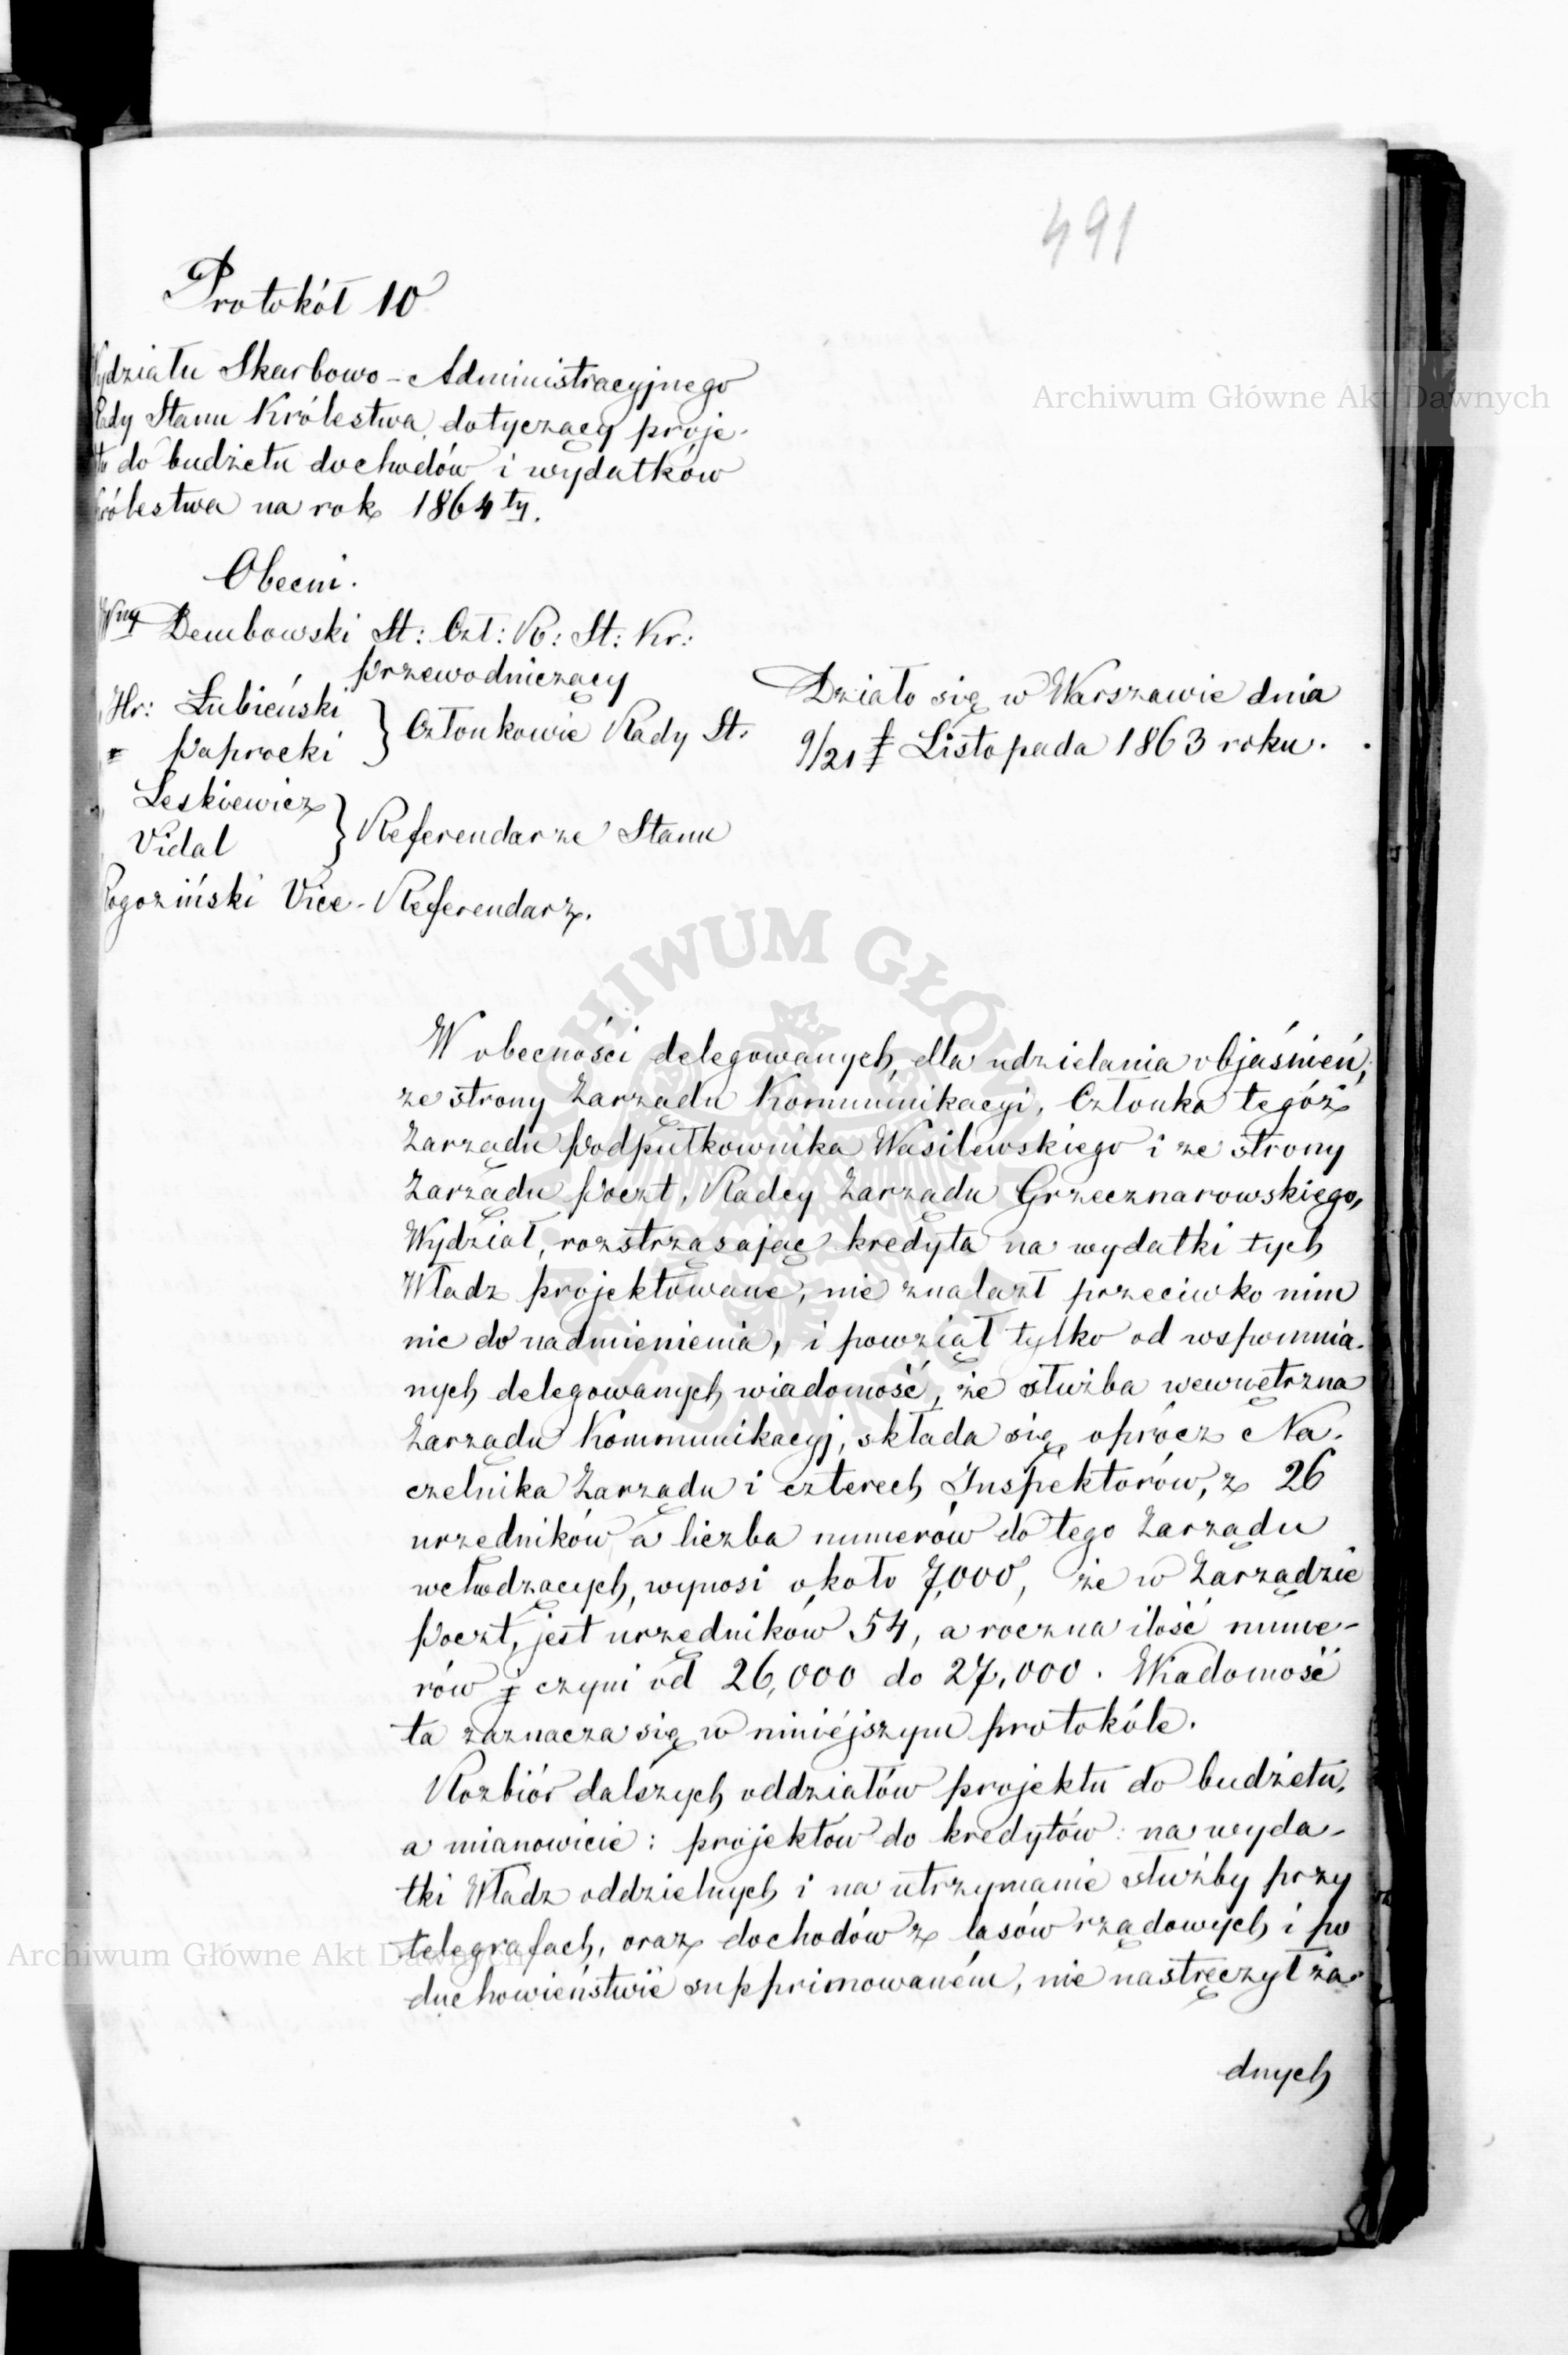 491
Protokół 10
Wydziału Skarbowo-Administracyjnego
Rady Stanu Królestwa dotyczący proje-
ktu do budżetu dochodów i wydatków
Królestwa na rok 1864ty.
Obecni.
Wny Dembowski St: Czł: R: St: Kr:
Przewodniczący
Hr: Łubieński } Członkowie Rady St.
" Paprocki
Leskiewicz } Referendarze Stanu
Vidal
Rogoziński Vice-Referendarz.
Działo się w Warszawie dnia
9/21 Listopada 1863 roku.
W obecności delegowanych, dla udzielania objaśnień,
ze strony Zarządu Kommunikacyi, Członka tegóż
Zarządu Podpułkownika Wasilewskiego i ze strony
Zarządu Poczt, Radcy Zarządu Grzecznarowskiego,
Wydział, rozstrząsając kredyta na wydatki tych
Władz projektowane, nie znalazł przeciwko nim
nic do nadmienienia, i powziął tylko od wspomnia-
nych delegowanych wiadomość, że służba wewnętrzna
Zarządu Kommunikacyj, składa się oprócz Na-
czelnika Zarządu i czterech Inspektorów, z 26
urzedników a liczba numerów do tego Zarządu
wchodzących, wynosi około 7,000, że w Zarządzie
Poczt, jest urzędników 54, a roczna ilość nume-
rów czyni od 26,000 do 27,000. Wiadomość
ta zaznacza się w niniéjszym protokóle.
Rozbiór dalszych oddziałów projektu do budżetu,
a mianowicie: projektów do kredytów: na wyda-
tki Władz oddzielnych i na utrzymanie służby przy
telegrafach, oraz dochodów z lasów rządowych i po
duchowieństwie supprimowaném, nie nastręczył ża-
dnych
Archiwum Główne Akt Dawnych
ARCHIWUM GŁÓWNE AKT DAWNYCH
Archiwum Główne Akt Dawnych